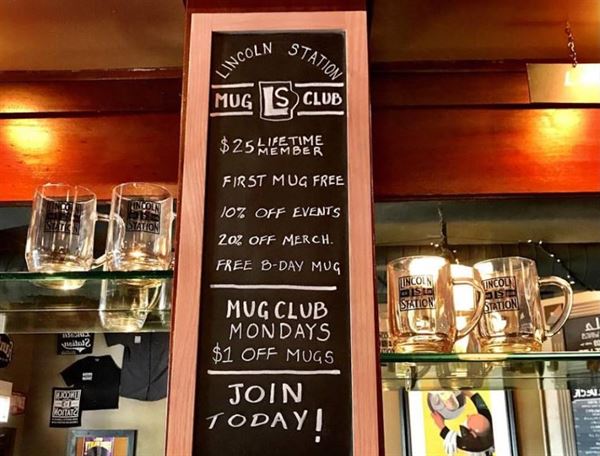 LINCOLN STATION
MUG LS CLUB
$25 LIFETIME MEMBER
FIRST MUG FREE
10% OFF EVENTS
20% OFF MERCH.
FREE B-DAY MUG
MUG CLUB
MONDAYS
$1 OFF MUGS
JOIN
TODAY!
LINCOLN
LS
STATION
LINCOLN
LS
STATION
LINCOLN
LS
STATION
LINCOLN
LS
STATION